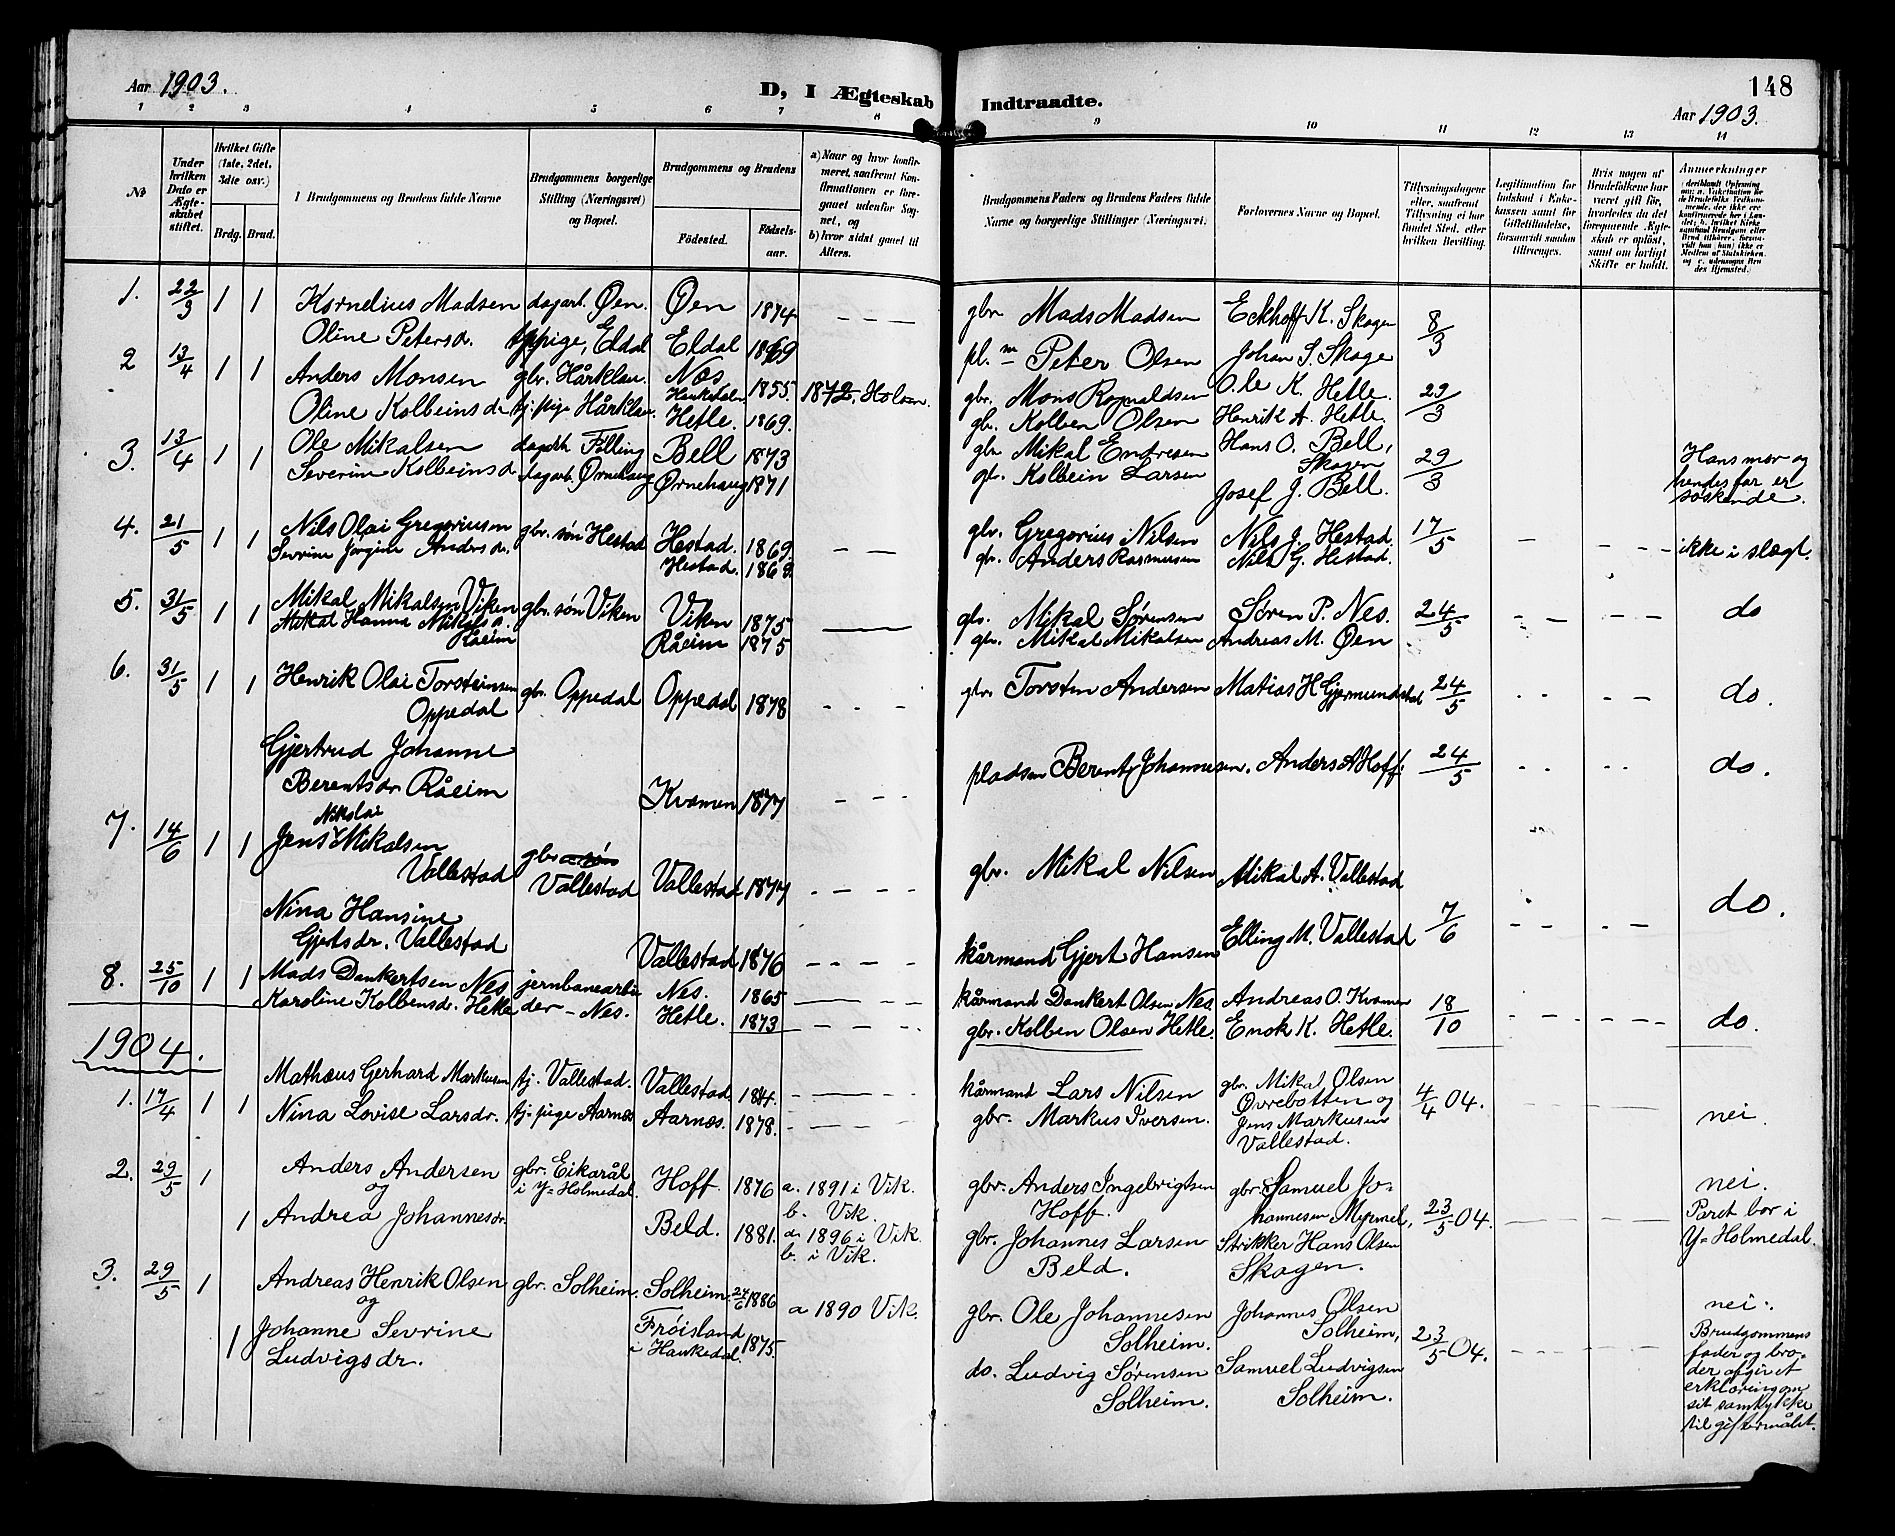 Aar 1903.
D, I Ægteskab Indtraadte.
148
Aar 1903.
1 2 3 4 5 6 7 8 9 10 11 12 13 14
No
Under hvilken Dato er Ægteskabet stiftet.
Hvilket Gifte (1ste, 2det, 3dte osv.)
Brdg. Brud.
I Brudgommens og Brudens fulde Navne
Brudgommens borgerlige Stilling (Næringsvei) og Bopæl.
Brudgommens og Brudens
Fødested.
Fødselsaar.
a) Naar og hvor konfirmeret, saafremt Konfirmationen er foregaaet udenfor Sognet, og
b) hvor sidst gaaet til Alters.
Brudgommens Faders og Brudens Faders fulde Navne og borgerlige Stillinger (Næringsvei).
Forlovernes Navne og Bopæl.
Tillysningsdagene eller, saafremt Tillysning ei har fundet Sted, efter hvilken Bevilling.
Legitimation for Indskud i Enkekassen samt for Giftetilladelse, forsaavidt saadan tiltrænges.
Hvis nogen af Brudefolkene har været gift før, hvorledes da det foregaaende Ægteskab er opløst, samt om lovligt Skifte er holdt.
Anmerkninger
1. 22/3 1 1 Kornelius Madsen dagarb. Øen. Øen 1874 - - - gbr Mads Madsen Eckhoff K. Skagen 8/3
Oline Petersd. tjpige, Eldal Eldal 1869 pl.m Peter Olsen Johan S. Skage
2 13/4 1 1 Anders Monsen gbr. Hårklau. Nes Haukedalen 1855. 1872. Holsen. gbr. Mons Rognaldsen Ole K. Hetle. 29/3
Oline Kolbeinsdr tj.pige Hårklau. Hetle. 1869. gb. Kolben Olsen Henrik A. Hetle.
3. 13/4 1 1 Ole Mikalsen Bell 1873 gbr Mikal Endresen Hans O. Bell, Skagen 29/3 Hans mor og hendes far er søskende.
Severine Kolbeinsd dagarb. Ørnehaug Ørnehaug 1871 gb. Kolbein Larsen Josef J. Bell.
4. 21/5 1 1 Nils Olai Gregoriusen gbr. søn Hestad Hestad. 1869. - - gbr. Gregorius Nilsen Nils J. Hestad. 17/5 - - - - ikke i slægt.
Sevrine Jørgine Andersdr. Hestad. 1868. gb. Anders Rasmusen Nils G. Hestad.
5. 31/5 1 1 Mikal Mikalsen Viken gbr. søn Viken Viken 1875 — gb. Mikal Sørensen Søren P. Nes. 24/5 - - - - do
Hanna Mikalsd. Råeim Råeim 1875 gbr. Mikal Mikalsen Andreas M. Øen
6. 31/5 1 1 Henrik Olai Torsteinsen Oppedal gbr. Oppedal Oppedal 1878 - - - gbr. Torsten Andersen Matias H Gjermundstad 24/5 - - - - do.
Gjertrud Johanne Berentsdr Råeim Kvamen 1877 - - - pladsm Berent Johannesen. Anders A Hoff. 24/5 - - - - do.
7. 14/6 1 1 Jens Nikolai Mikalsen Vallestad gbr søn Vallestad Vallestad 1877 - - - - gbr. Mikal Nilsen Mikal A. Vallestad
Nina Hansine Gjertsdr. Vallestad Vallestad 1876 - - - - kårmand Gjert Hansen Elling M. Vallestad 7/6 - - - - do.
8. 25/10 1 1 Mads Dankertsen Nes jernbanearbeider - Nes. Nes. 1865 - - - - kårmand Dankert Olsen Nes. Andreas O. Kvamen 18/10 - - - - - - do.
Karoline Kolbensdr. Hetle Hetle. 1873 - - - - gbr. Kolben Olsen Hetle. Enok K. Hetle.
1904.
1. 17/4 1 1 Mathæus Gerhard Markusen tj. Vallestad. Vallestad 1884. - - - - kårmand Lars Nilsen gbr. Mikal Olsen Øvrebotten og 4/4 04. - - - - - nei.
Nina Lovise Larsdr. tj-pige Aarnes Aarnes. 1878. - - - - gbr. Markus Iversen. Jens Markusen Vallestad.
2. 29/5 1 Anders Andersen gbr. Eikarål i Y= Holmedal. Hoff. 1876 a. 1891 i Vik. b. Vik. gbr. Anders Ingebrigtsen Hoff. gbr. Samuel Johannesen Myrmel, 23/5 04. - - - - - nei. Paret bor i Y= Holmedal.
og
1 Andrea Johannesdr. Beld. 1881. a. 1896 i Vik. b. i Vik. gbr. Johannes Larsen Beld. Strikker Hans Olsen Skagen.
3. 29/5 1 Andreas Henrik Olsen gbr. Solheim. Solheim. 24/6 1886 a 1890 Vik. gbr. Ole Johannesen Solheim. Johannes Olsen Solheim, 23/5 04. - - - - - nei.
og
1 Johanne Sevrine Ludvigsdr. Frøisland i Haukedal. 1875. do. Ludvig Sørensen Solheim. Samuel Ludvigsen Solheim. Brudgommens fader og broder afgivet erklæring om sit samtykke til giftermålet.